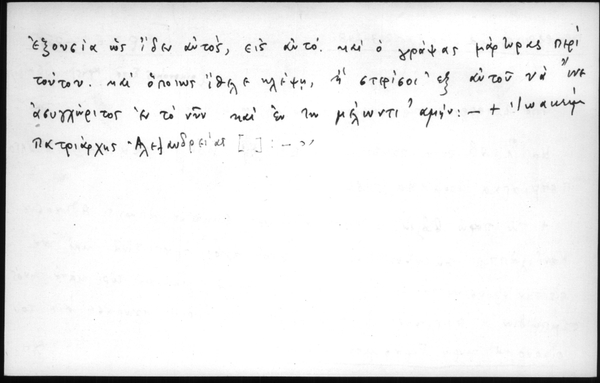 ἐξουσία ὡς ἴδεν αὐτὸς, εἰς αὐτό. καὶ ὁ γράψας μάρτυρας περὶ
τούτου. καὶ ὅποιως ἤθελε κλέψῃ, ἢ στερίσοι ἐξ αὐτοῦ νὰ ἦνε
ἀσυγχώριτος ἐν τὸ νῦν καὶ ἐν τῳ μέλωντι ἀμήν: – + Ἰωακεὶμ
πατριάρχης Ἀλεξανδρείας [ ] : –